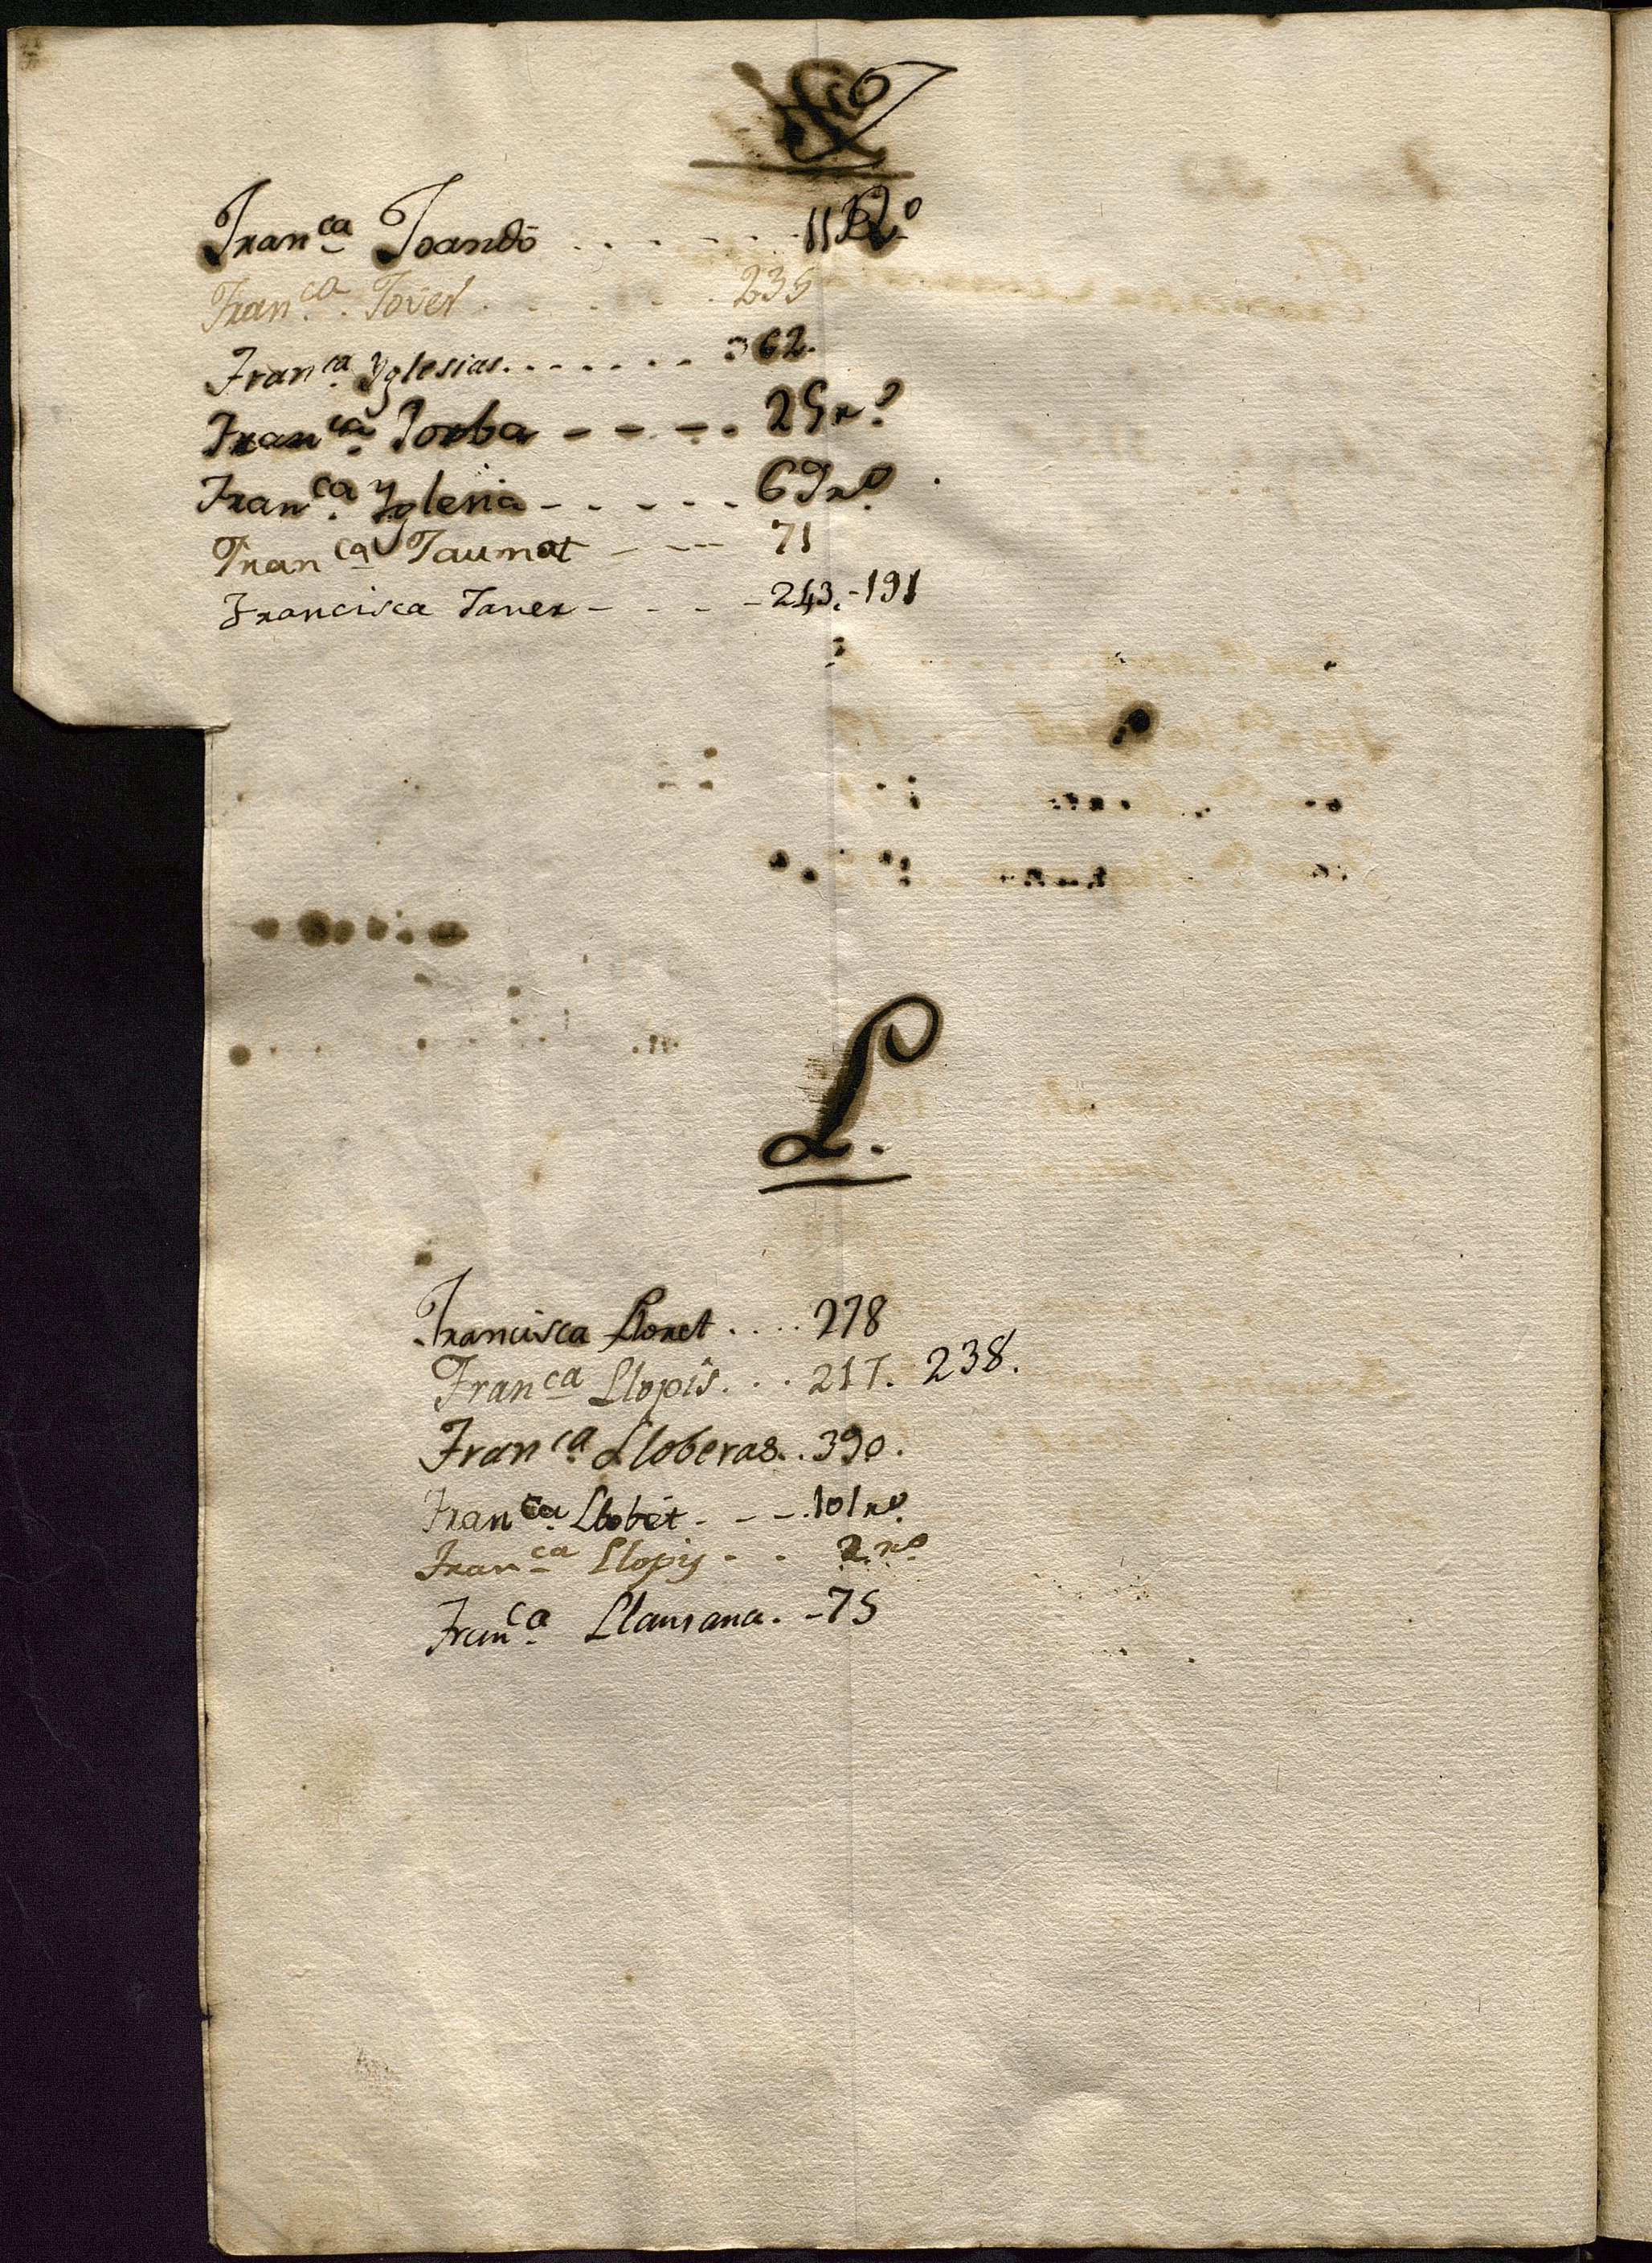 I
Fran.ca Joandò . . . . . . . 11
Fran.ca Jover . . . . . . . 235
Fran.ca Yglesias . . . . . . . 362.
Fran.ca Jorba - - - - . 25 r.º
Fran.ca Yglesia - - - - - . 69 rº.
Fran.ca Jaumot - - - - 71
Francisca Janer - - - - - 243. - 191
L.
Francisca Lloret . . . . 278
Fran.ca Llopis. . . . 217. 238.
Fran.ca Lloberas . . 390.
Fran.ca Llobet - - - . 101 rº.
Fran.ca Llopis - - . 2. rº
Fran.ca Llansana. - 75